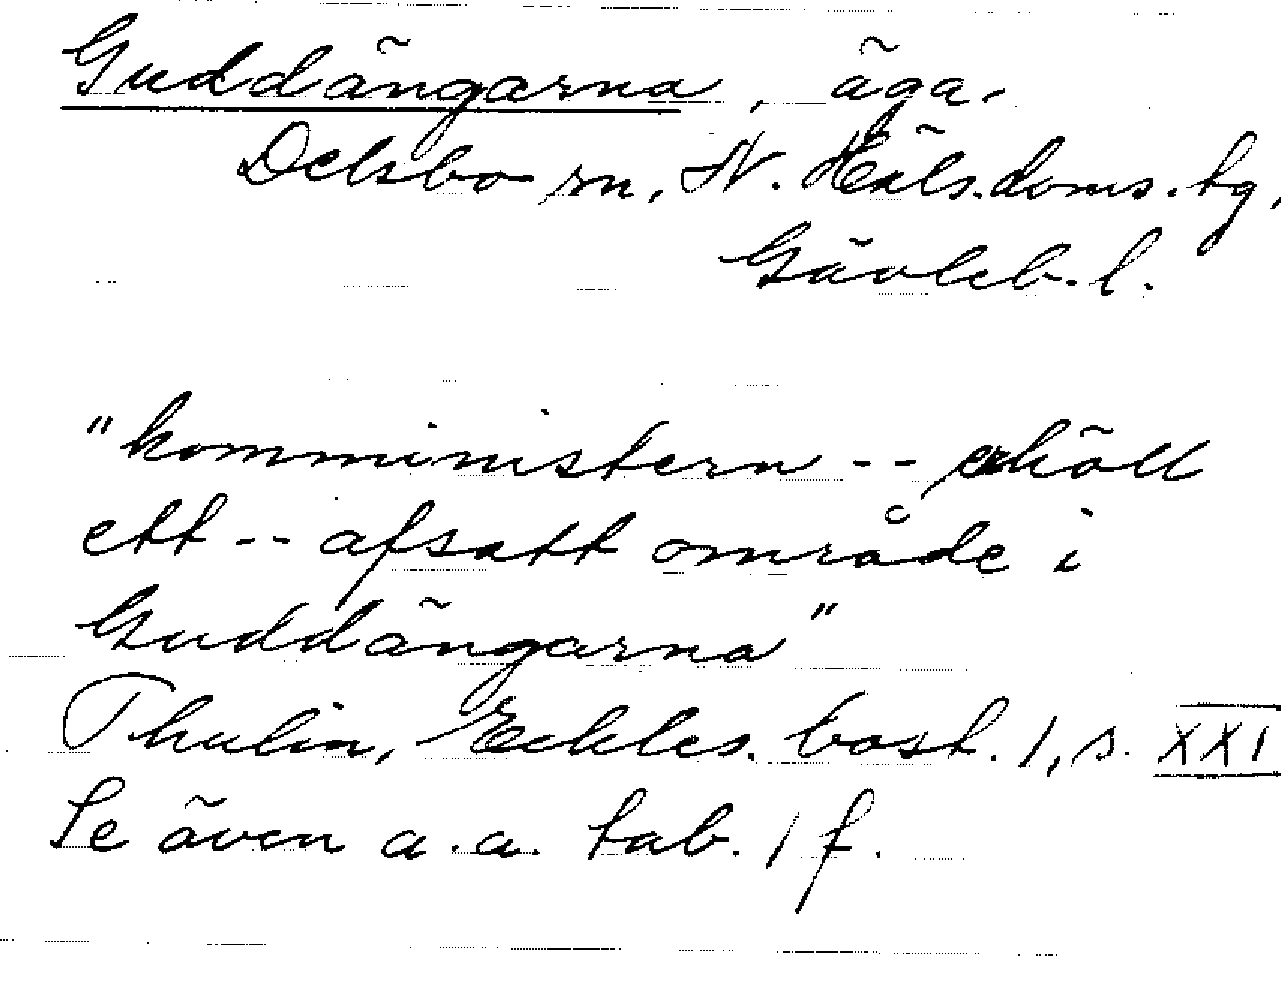 Guddängarna, äga.
Delsbo sn, N. Häls. doms. tg,
Gävleb. l.
"komministern -- erhöll
ett -- afsatt område i
Guddängarna"
Thulin, Eckles. bost. 1, s. XXI
Se även a.a. tab. 1 f.